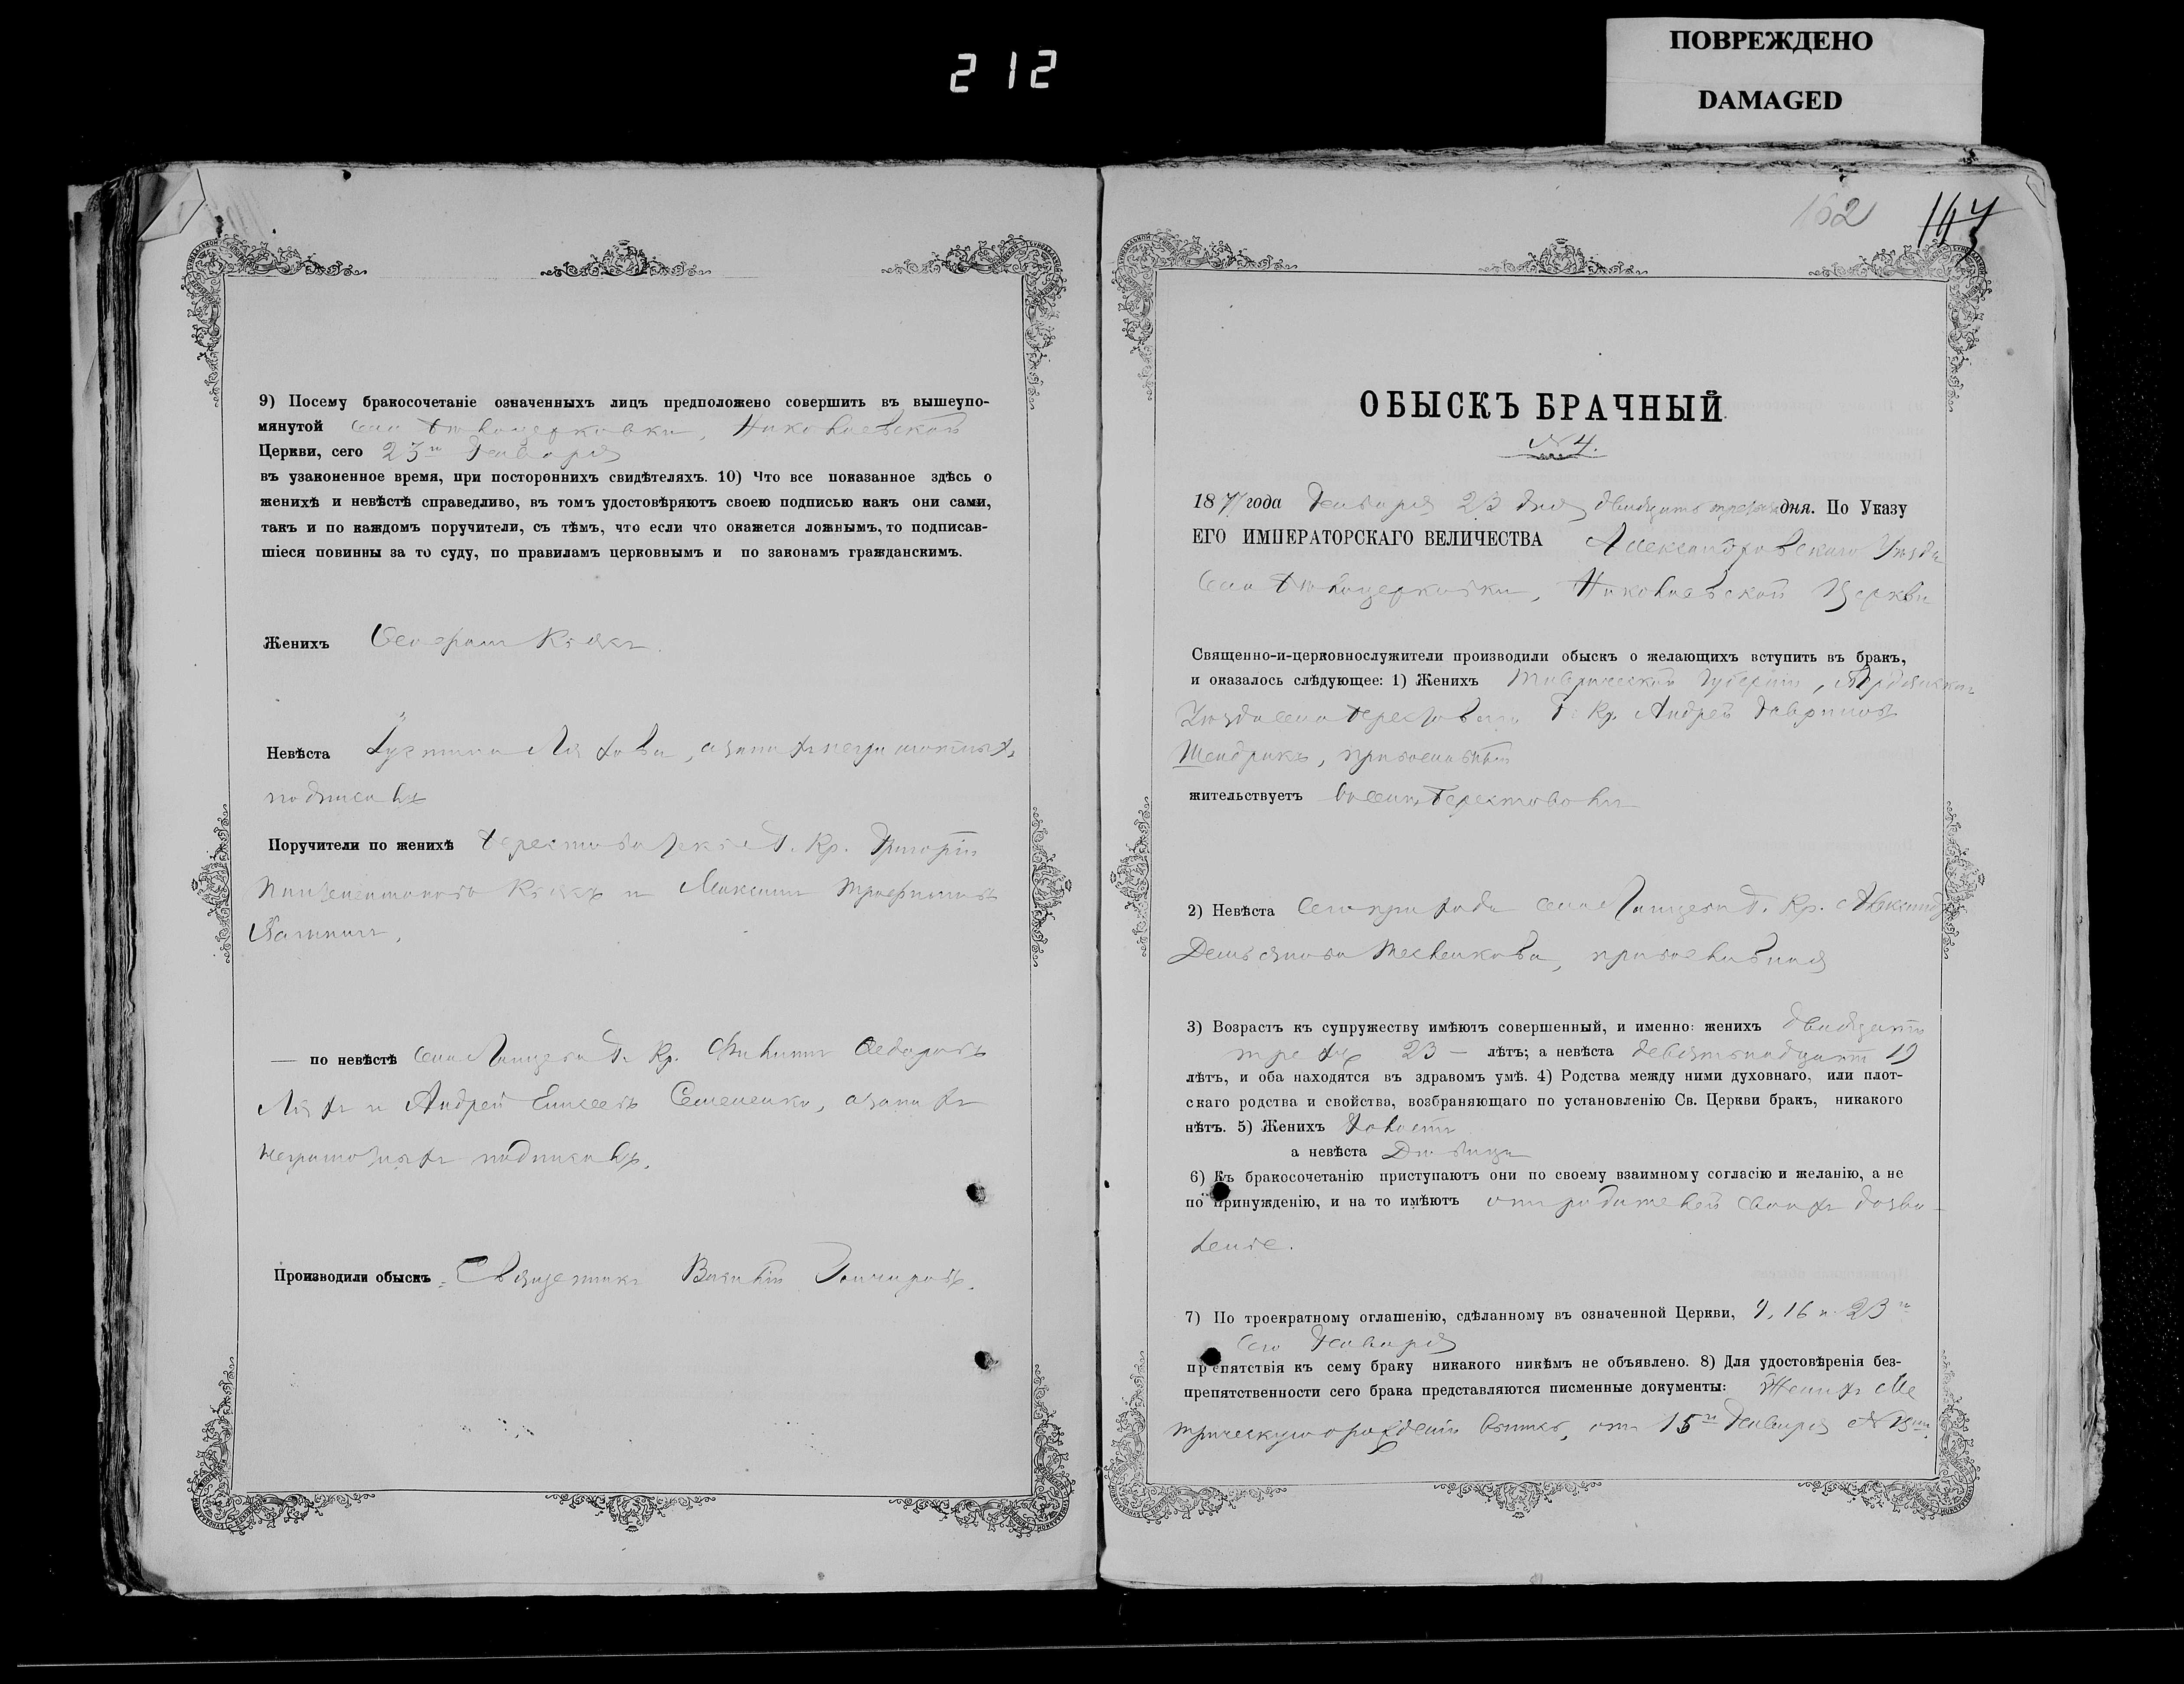 212
ПОВРЕЖДЕНО
DAMAGED
9) Посему бракосочетаніе означенныхъ лицъ предположено совершить въ вышеупо-
мянутой села Бѣлоцерковки, Николаевской
Церкви, сего 23го Генваря
въ узаконенное время, при постороннихъ свидѣтеляхъ. 10) Что все показанное здѣсь о
женихѣ и невѣстѣ справедливо, въ томъ удостовѣряютъ своею подписью какъ они сами,
такъ и по каждомъ поручители, съ тѣмъ, что если что окажется ложнымъ, то подписав-
шіеся повинны за то суду, по правиламъ церковнымъ и по законамъ гражданскимъ.
Женихъ
Невѣста Іустина Ляхова, а за нихъ неграмотныхъ
подписалъ
Поручители по женихѣ Г. Кр. Григорій
и Максимъ Трофимовъ
— по невѣстѣ села Г. Кр. Никита Федоровъ
Ляхъ и Андрей Елисеевъ Семененко, а за нихъ
неграмотныхъ подписалъ.
Производили обыскъ: Священникъ Василій Гончаровъ.
162
ОБЫСКЪ БРАЧНЫЙ
№ 4.
1877 года Генваря 23 дня двадцать третьяго дня. По Указу
ЕГО ИМПЕРАТОРСКАГО ВЕЛИЧЕСТВА Александровскаго Уѣзда
Села Бѣлоцерковки, Николаевской Церкви
Священно-и-церковнослужители производили обыскъ о желающихъ вступить въ бракъ,
и оказалось слѣдующее: 1) Женихъ Таврической Губерніи, Бердянскаго
Уѣзда села Берестоваго Г. Кр. Андрей Гавриловъ
Шендрикъ, православный
жительствуетъ въ селѣ Берестовомъ
2) Невѣста села Г. Кр.
Демьянова, православная
3) Возрастъ къ супружеству имѣютъ совершенный, и именно: женихъ двадцать
трехъ 23 — лѣтъ; а невѣста девятнадцать 19
лѣтъ, и оба находятся въ здравомъ умѣ. 4) Родства между ними духовнаго, или плот-
скаго родства и свойства, возбраняющаго по установленію Св. Церкви бракъ, никакого
нѣтъ. 5) Женихъ Холостъ
а невѣста Дѣвица
6) Къ бракосочетанію приступаютъ они по своему взаимному согласію и желанію, а не
по принужденію, и на то имѣютъ отъ родителей своихъ дозво-
леніе.
7) По троекратному оглашенію, сдѣланному въ означенной Церкви, 9, 16 и 23го
Сего Генваря
препятствія къ сему браку никакого никѣмъ не объявлено. 8) Для удостовѣренія без-
препятственности сего брака представляются писменные документы: Женихъ Ме
трическую о рожденіи выпись, отъ 15го Генваря №